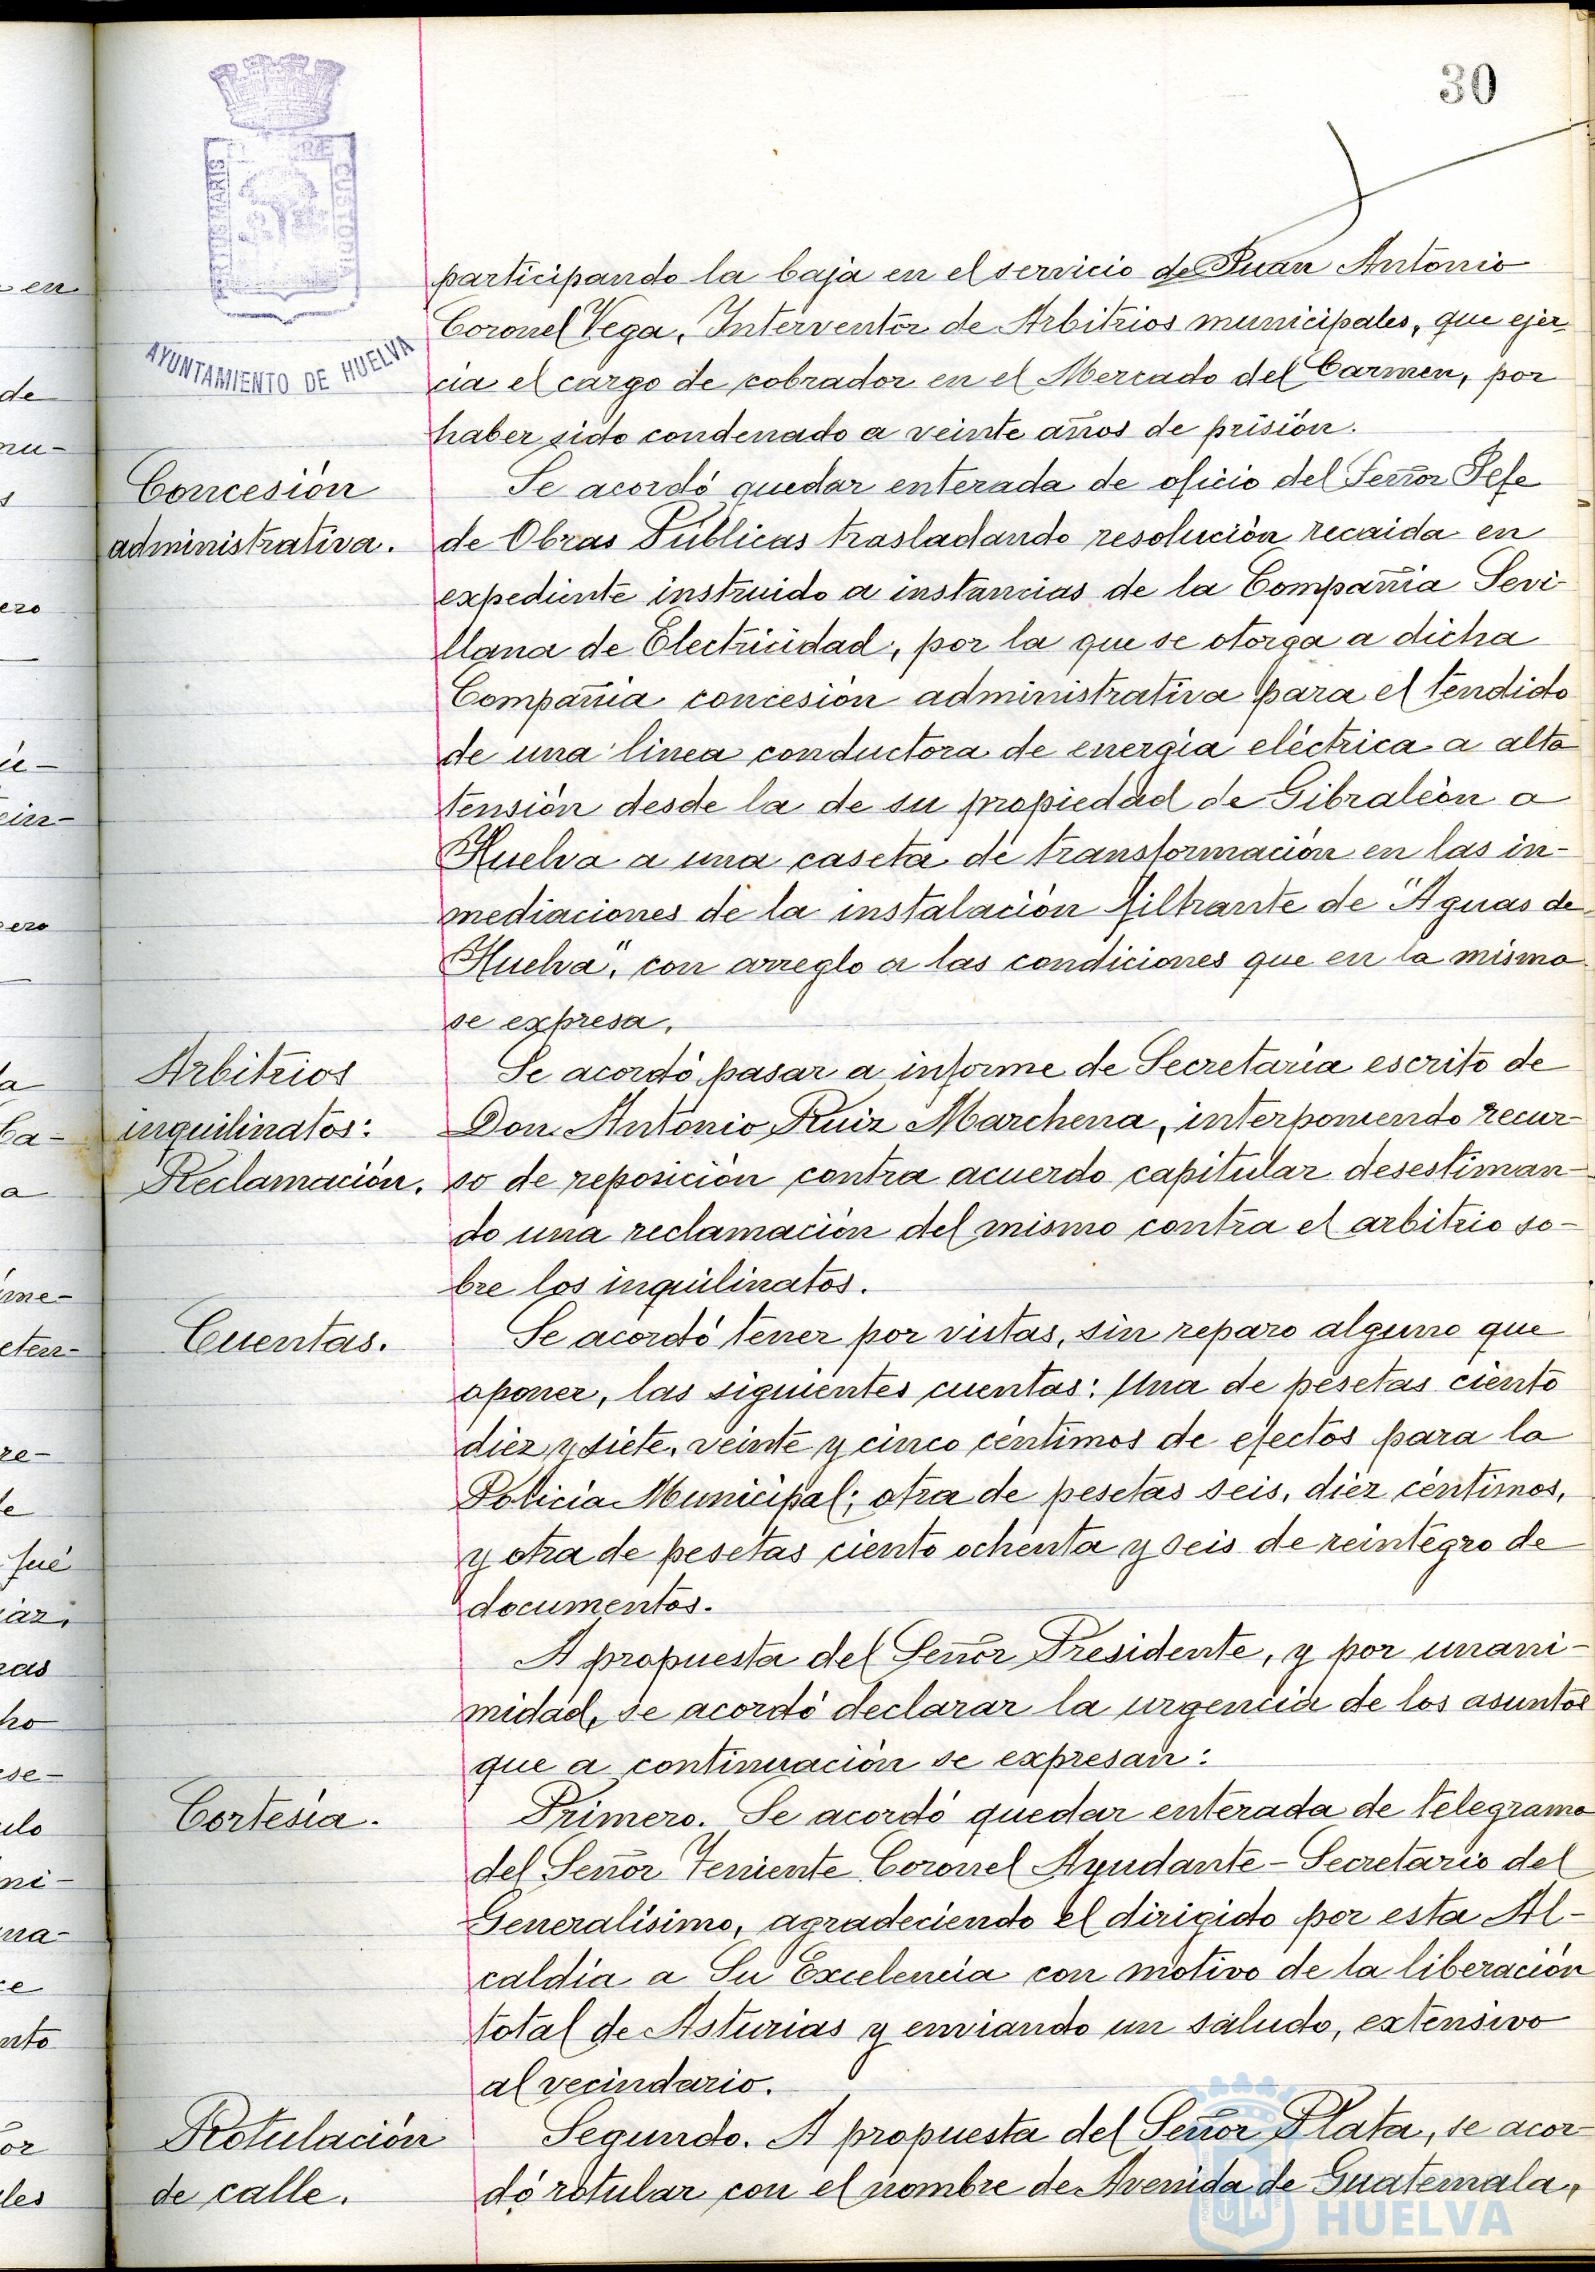 30
PORTUS MARIS
ET TERRÆ
CUSTODIA
AYUNTAMIENTO DE HUELVA
participando la baja en el servicio de Juan Antonio
Coronel Vega, Interventor de Arbitrios municipales, que ejer-
cia el cargo de cobrador en el Mercado del Carmen, por
haber sido condenado a veinte años de prisión.
Concesión
administrativa.
Se acordó quedar enterada de oficio del Señor Jefe
de Obras Públicas trasladando resolución recaida en
expediente instruido a instancias de la Compañia Sevi-
llana de Electricidad, por la que se otorga a dicha
Compañia concesión administrativa para el tendido
de una linea conductora de energia eléctrica a alta
tensión desde la de su propiedad de Gibraleón a
Huelva a una caseta de transformación en las in-
mediaciones de la instalación filtrante de "Aguas de
Huelva", con arreglo a las condiciones que en la misma
se expresa.
Arbitrios
inquilinatos:
Reclamación.
Se acordó pasar a informe de Secretaría escrito de
Don Antonio Ruiz Marchena, interponiendo recur-
so de reposición contra acuerdo capitular desestiman-
do una reclamación del mismo contra el arbitrio so-
bre los inquilinatos.
Cuentas.
Se acordó tener por vistas, sin reparo alguno que
oponer, las siguientes cuentas: Una de pesetas ciento
diez y siete, veinte y cinco céntimos de efectos para la
Policía Municipal; otra de pesetas seis, diez céntimos,
y otra de pesetas ciento ochenta y seis de reintegro de
documentos.
A propuesta del Señor Presidente, y por unani-
midad, se acordó declarar la urgencia de los asuntos
que a continuación se expresan:
Cortesía.
Primero. Se acordó quedar enterada de telegrama
del Señor Teniente Coronel Ayudante-Secretario del
Generalísimo, agradeciendo el dirigido por esta Al-
caldía a Su Excelencia con motivo de la liberación
total de Asturias y enviando un saludo, extensivo
al vecindario.
Rotulación
de calle.
Segundo. A propuesta del Señor Plata, se acor-
dó rotular con el nombre de Avenida de Guatemala,
HUELVA